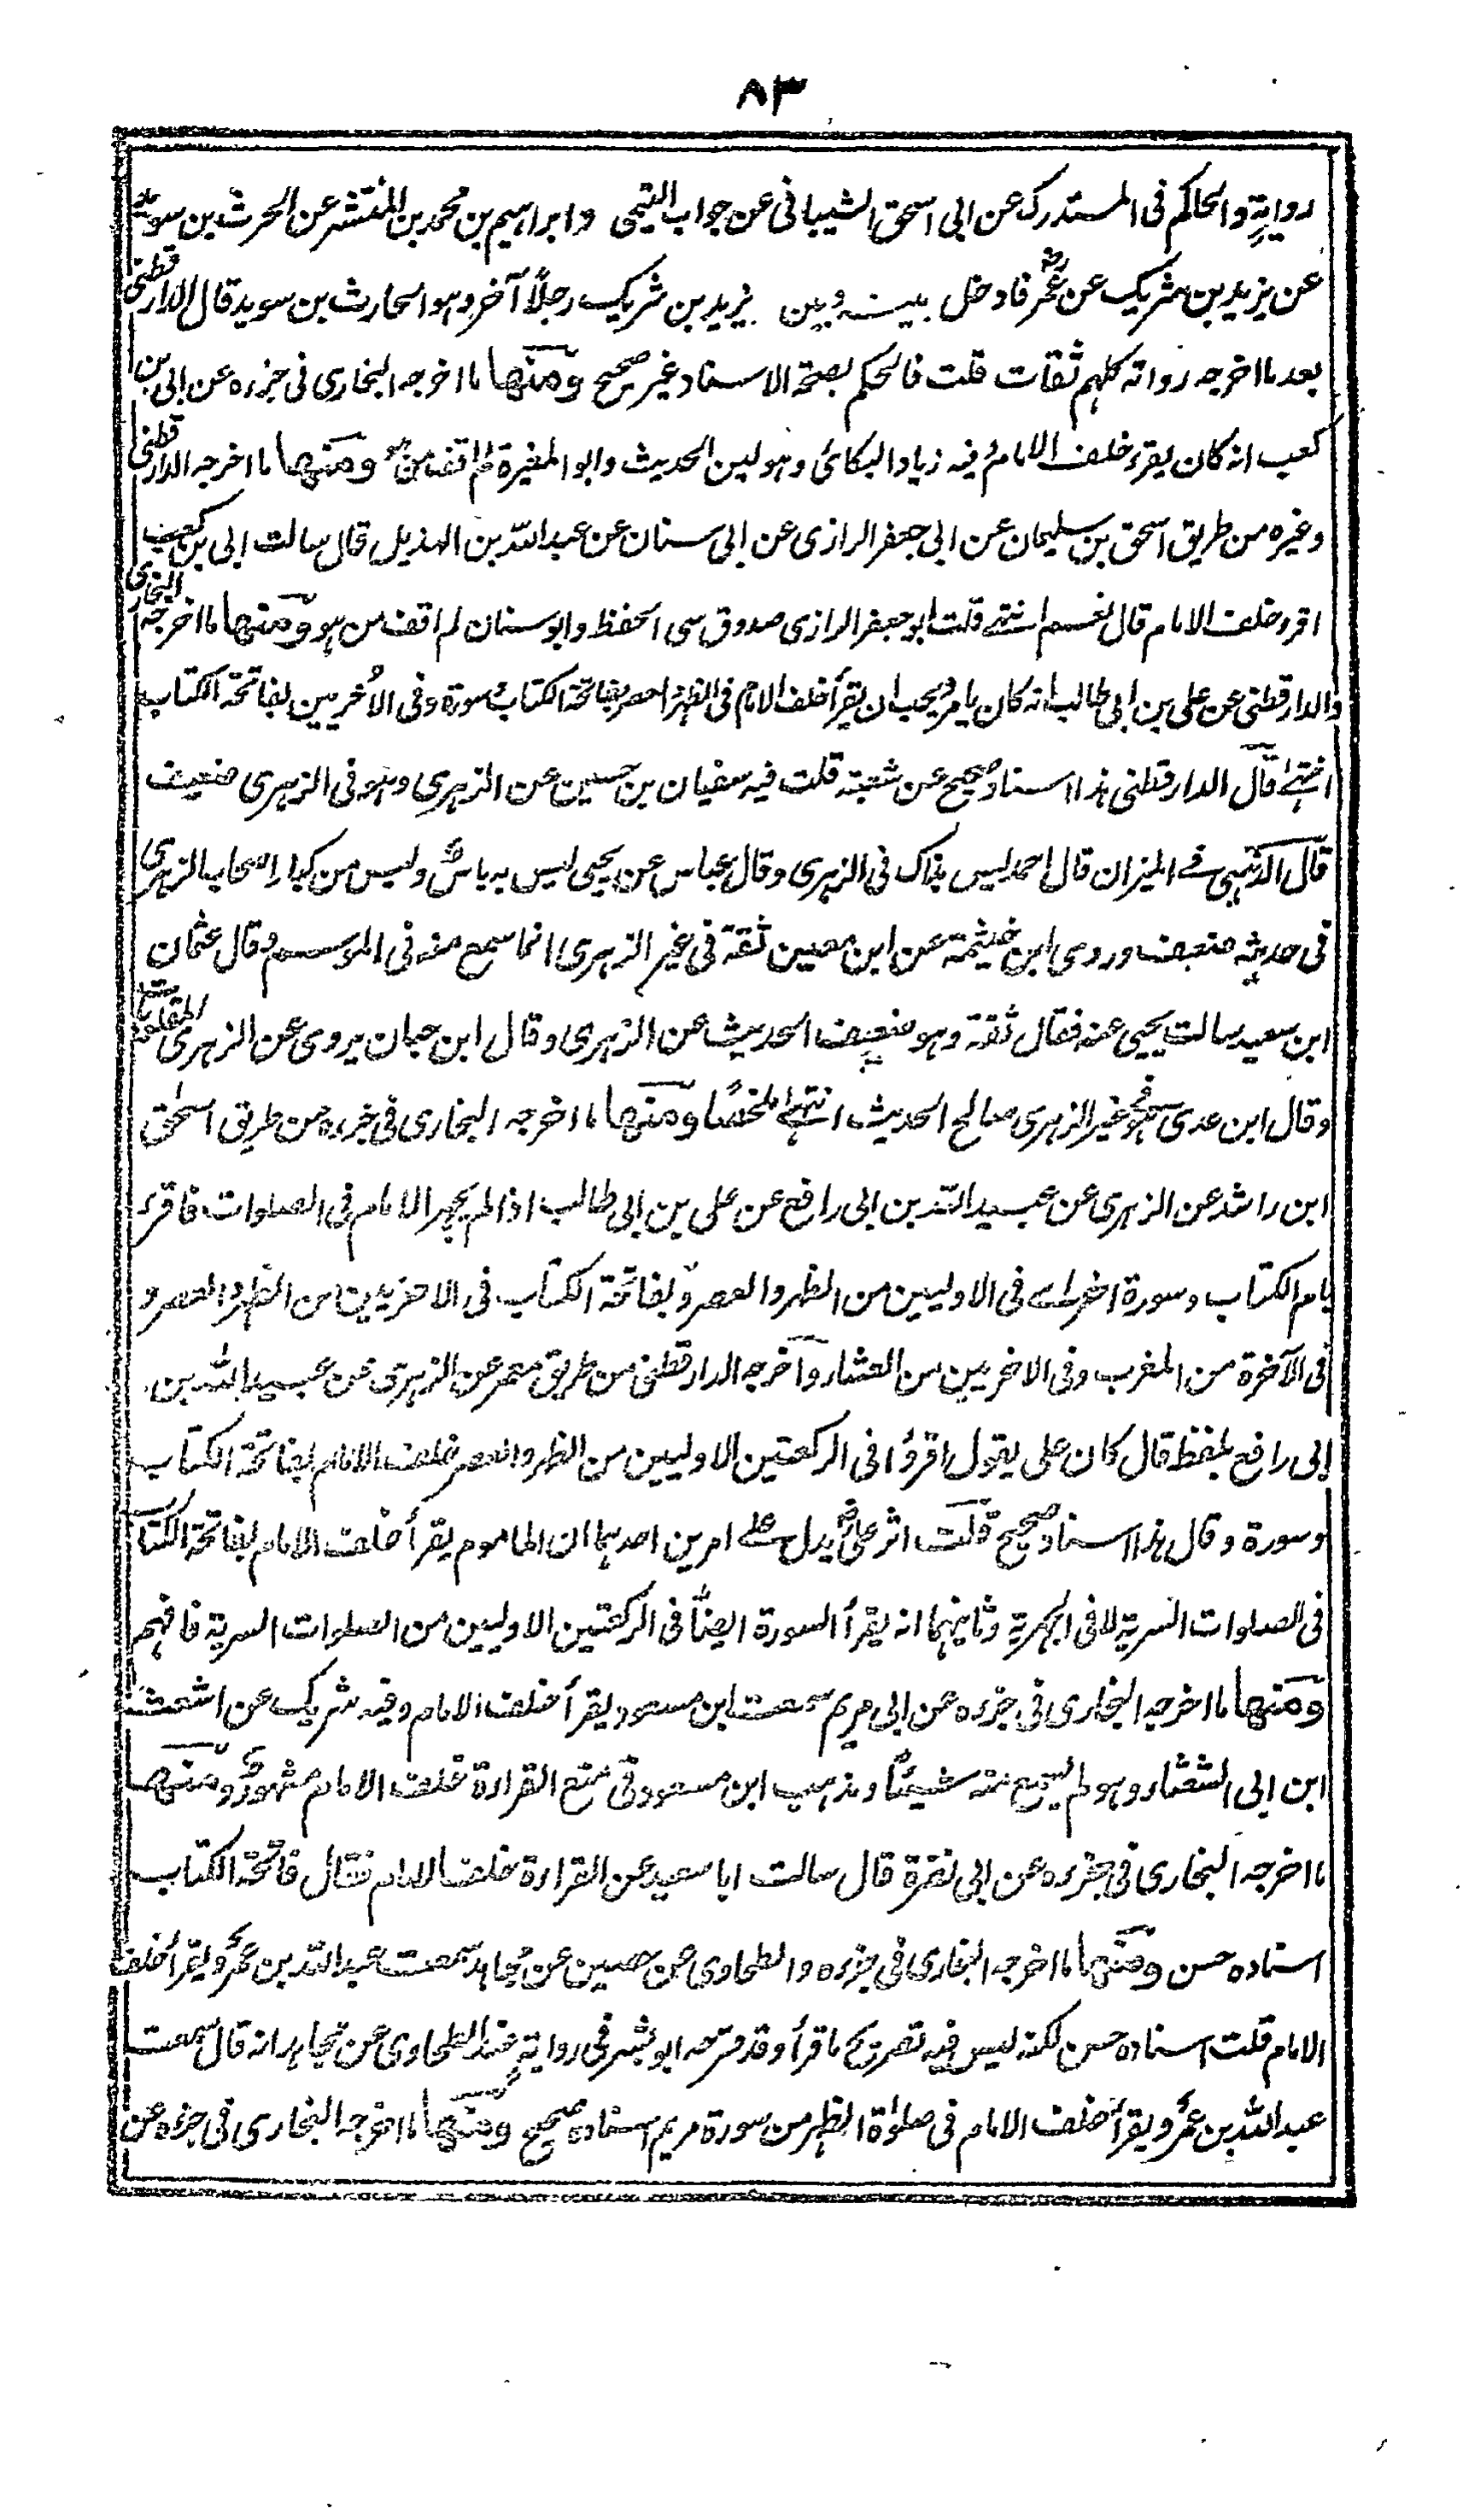 ٨٣
رواية والحاكم فى المستدرك عن ابى اسحق الشيبانى عن جواب التيمى وابراهيم بن محمد بن المنتشر عن الحرث بن سويد
عن يزيد بن شريك عن عمرؓ فادخل بينه وبين يزيد بن شريك رجلًا آخر وهو الحارث بن سويد قال الدارقطنى
بعد ما اخرجه رواته كلهم ثقات قلت فالحكم بصحة الاسناد غير صحيح ومنها ما اخرجه البخارى فى جزءه عن ابى بن
كعب انه كان يقرء خلف الامام فيه زياد البكائى وهو لين الحديث وابو المغيرة لم اقف من هو ومنها ما اخرجه الدارقطنى
وغيره من طريق اسحق بن سليمان عن ابى جعفر الرازى عن ابى سنان عن عبد الله بن الهذيل قال سالت ابى بن كعب
اقرء خلف الامام قال نعم انتهى قلت ابو جعفر الرازى صدوق سى الحفظ وابو سنان لم اقف من هو ومنها ما اخرجه البخارى
والدارقطنى عن على بن ابى طالب انه كان يامر ويحب ان يقرأ خلف الامام فى الظهر والعصر بفاتحة الكتاب وسورة وفى الأخريين بفاتحة الكتاب
انتهى قال الدارقطنى هذا اسناد صحيح عن شعبة قلت فيه سفيان بن حسين عن الزهرى وهو فى الزهرى ضعيف
قال الذهبى فى الميزان قال احمد ليس بذاك فى الزهرى وقال عباس عن يحيى ليس به باس وليس من كبار اصحاب الزهرى
فى حديثه ضعيف وروى ابن خيثمة عن ابن معين ثقة فى غير الزهرى انما سمع منه فى الموسم وقال عثمان
ابن سعيد سالت يحيى عنه فقال ثقة وهو ضعيف الحديث عن الزهرى وقال ابن حبان يروى عن الزهرى المقلوبات
وقال ابن عدى هو فى غير الزهرى صالح الحديث انتهى ملخصًا ومنها ما اخرجه البخارى فى جزءه من طريق اسحٰق
ابن راشد عن الزهرى عن عبيد الله بن ابى رافع عن على بن ابى طالب اذا لم يجهر الامام فى الصلوات فاقرء
بام الكتاب وسورة اخرى فى الاوليين من الظهر والعصر وبفاتحة الكتاب فى الاخريين من الظهر والعصر و
فى الآخرة من المغرب وفى الاخريين من العشاء وآخرجه الدارقطنى من طريق معمر عن الزهرى عن عبيد الله بن
ابى رافع بلفظ قال كان على يقول اقرؤا فى الركعتين الاوليين من الظهر والعصر خلف الامام بفاتحة الكتاب
وسورة وقال هذا اسناد صحيح قلت اثر علىؓ يدل على امرين احدهما ان الماموم يقرأ خلف الامام بفاتحة الكتاب
فى الصلوات السرية لا فى الجهرية وثانيهما انه يقرأ السورة ايضًا فى الركعتين الاوليين من الصلوات السرية فافهم
ومنها ما اخرجه البخارى فى جزءه عن ابى مريم سمعت ابن مسعود يقرأ خلف الامام وفيه شريك عن اشعث
ابن ابى الشعثاء وهو لم يسمع منه شيئًا ومذهب ابن مسعود فى منع القراءة خلف الامام مشهور ومنها
ما اخرجه البخارى فى جزءه عن ابى نضرة قال سالت ابا سعيد عن القراءة خلف الامام فقال فاتحة الكتاب
اسناده حسن ومنها ما اخرجه البخارى فى جزءه والطحاوى عن حصين عن مجاهد سمعت عبد الله بن عمرو يقرأ خلف
الامام قلت اسناده حسن لكنه ليس فيه تصريح ما قرأ وقد صرحه ابو بشر فى رواية عند الطحاوى عن مجاهد انه قال سمعت
عبد الله بن عمرو يقرأ خلف الامام فى صلوٰة الظهر من سورة مريم اسناده صحيح ومنها ما اخرجه البخارى فى جزءه عن